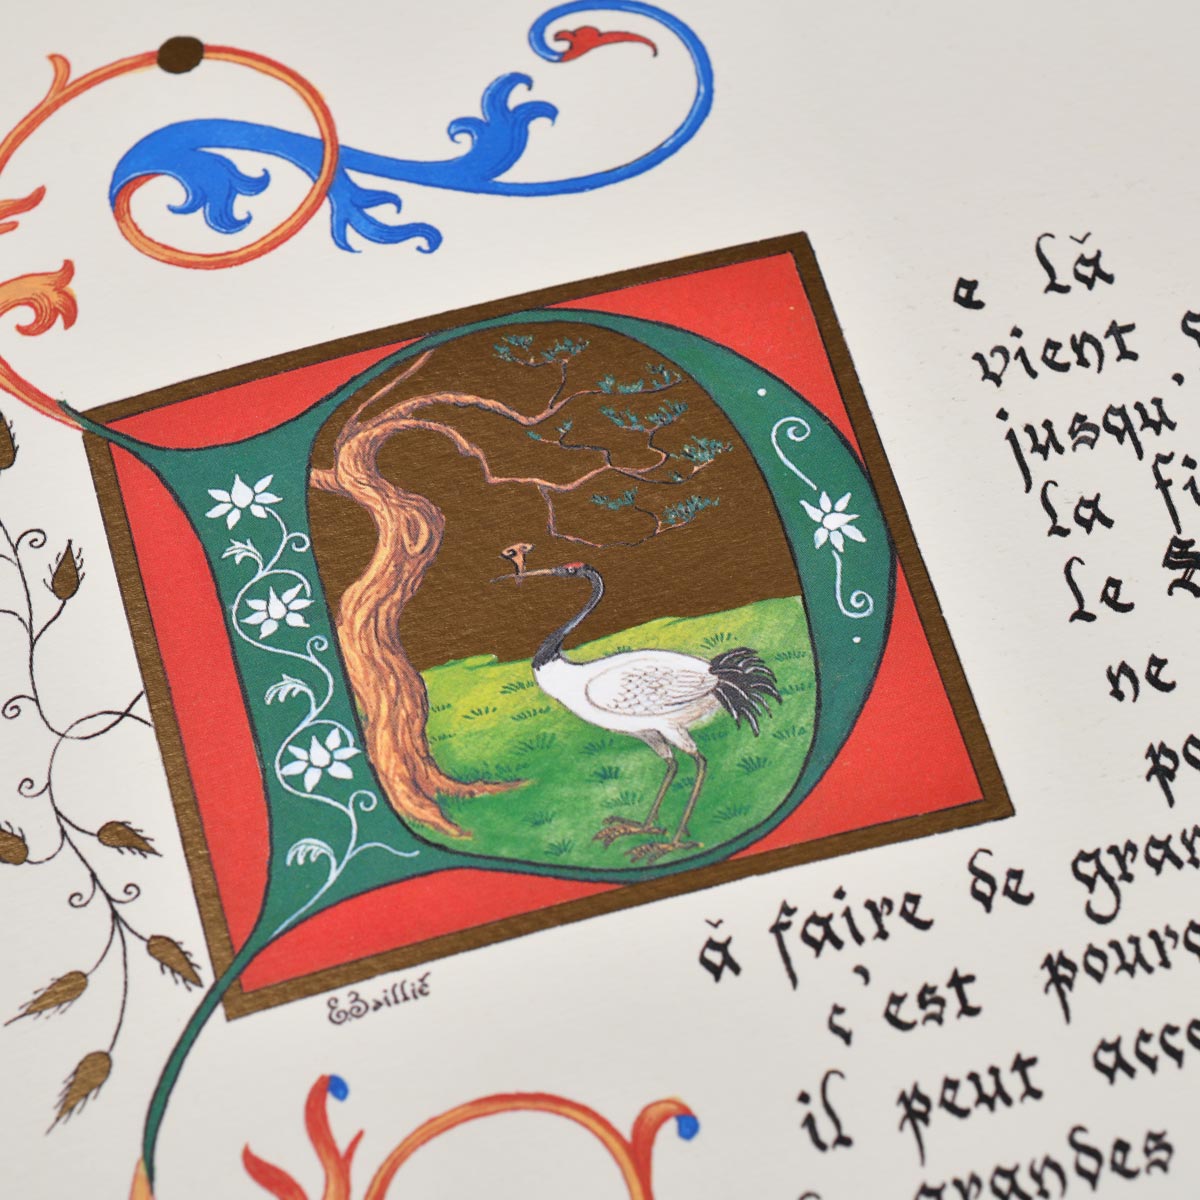 De là
vient
jusqu'
la
le
ne
à faire de gran
c'est
il peut
grandes
E. Baillié